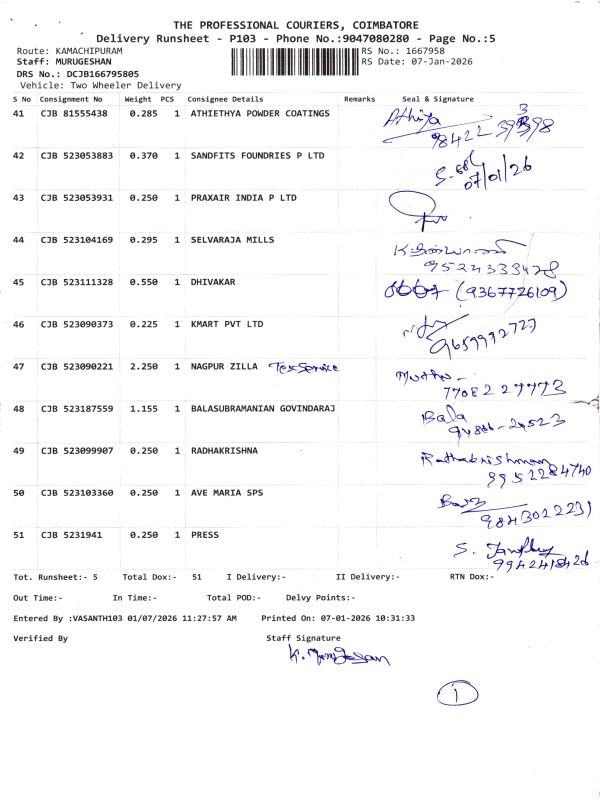 THE PROFESSIONAL COURIERS, COIMBATORE
Delivery Runsheet - P103 - Phone No.:9047080280 - Page No.:5
Route: KAMACHIPURAM RS No.: 1667958
Staff: MURUGESHAN RS Date: 07-Jan-2026
DRS No.: DCJB166795805
Vehicle: Two Wheeler Delivery
S No Consignment No Weight PCS Consignee Details Remarks Seal & Signature
41 CJB 81555438 0.285 1 ATHIETHYA POWDER COATINGS Athiya
42 CJB 523053883 0.370 1 SANDFITS FOUNDRIES P LTD
07/01/26
43 CJB 523053931 0.250 1 PRAXAIR INDIA P LTD
44 CJB 523104169 0.295 1 SELVARAJA MILLS
9524333428
45 CJB 523111328 0.550 1 DHIVAKAR (9367726109)
46 CJB 523090373 0.225 1 KMART PVT LTD
9659992727
47 CJB 523090221 2.250 1 NAGPUR ZILLA Tex Service
7708227773
48 CJB 523187559 1.155 1 BALASUBRAMANIAN GOVINDARAJ Bala
49 CJB 523099907 0.250 1 RADHAKRISHNA Rathakrishnan
9952284740
50 CJB 523103360 0.250 1 AVE MARIA SPS
9843022231
51 CJB 5231941 0.250 1 PRESS
9942418426
Tot. Runsheet:- 5 Total Dox:- 51 I Delivery:- II Delivery:- RTN Dox:-
Out Time:- In Time:- Total POD:- Delvy Points:-
Entered By :VASANTH103 01/07/2026 11:27:57 AM Printed On: 07-01-2026 10:31:33
Verified By Staff Signature
1